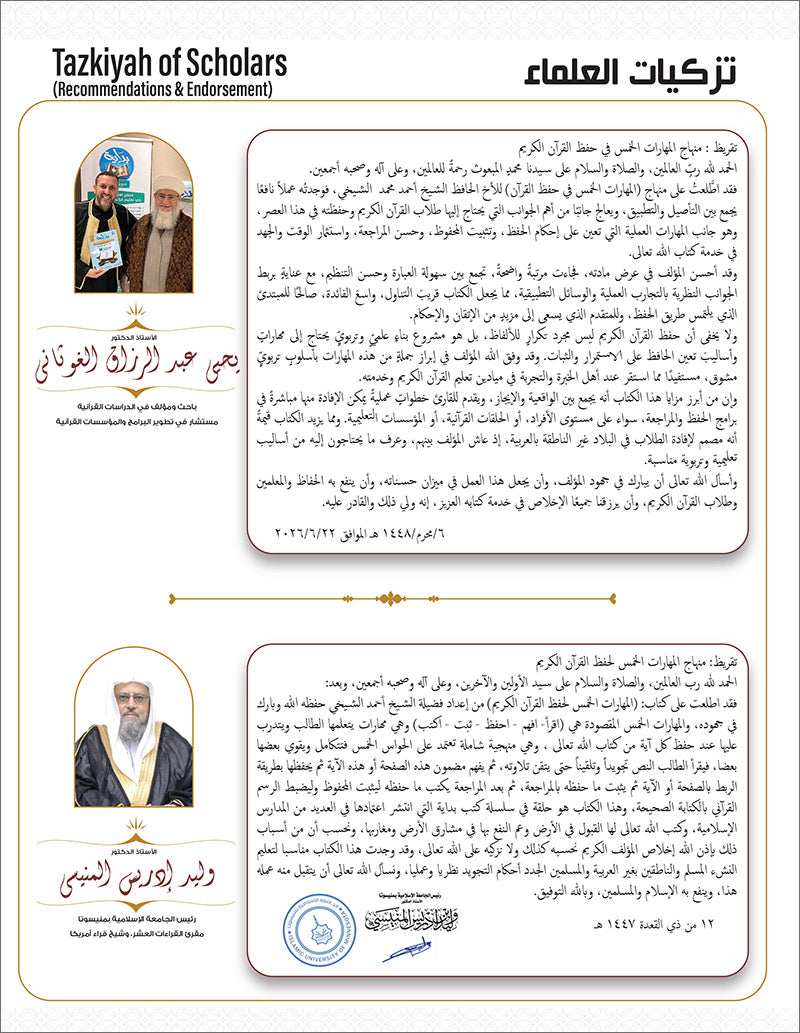 Tazkiyah of Scholars
(Recommendations & Endorsement)
تزكيات العلماء
تقريظ : منهاج المهارات الخمس في حفظ القرآن الكريم
الحمد لله ربّ العالمين، والصلاة والسلام على سيدنا محمدٍ المبعوث رحمةً للعالمين، وعلى آله وصحبه أجمعين.
فقد اطَّلعتُ على منهاج (المهارات الخمس في حفظ القرآن) للأخ الحافظ الشيخ أحمد محمد الشيخي، فوجدتُه عملاً نافعًا
يجمع بين التأصيل والتطبيق، ويعالج جانبًا من أهم الجوانب التي يحتاج إليها طلاب القرآن الكريم وحفظته في هذا العصر،
وهو جانب المهارات العملية التي تعين على إحكام الحفظ، وتثبيت المحفوظ، وحسن المراجعة، واستثمار الوقت والجهد
في خدمة كتاب الله تعالى.
وقد أحسن المؤلف في عرض مادته، فجاءت مرتبةً واضحةً، تجمع بين سهولة العبارة وحسن التنظيم، مع عنايةٍ بربط
الجوانب النظرية بالتجارب العملية والوسائل التطبيقية، مما يجعل الكتاب قريبَ التناول، واسعَ الفائدة، صالحًا للمبتدئ
الذي يلتمس طريق الحفظ، وللمتقدم الذي يسعى إلى مزيدٍ من الإتقان والإحكام.
ولا يخفى أن حفظ القرآن الكريم ليس مجرد تكرارٍ للألفاظ، بل هو مشروع بناءٍ علميٍّ وتربويٍّ يحتاج إلى مهاراتٍ
وأساليبَ تعين الحافظ على الاستمرار والثبات. وقد وفق الله المؤلف في إبراز جملةٍ من هذه المهارات بأسلوبٍ تربويٍّ
مشوق، مستفيدًا مما استقر عند أهل الخبرة والتجربة في ميادين تعليم القرآن الكريم وخدمته.
وإن من أبرز مزايا هذا الكتاب أنه يجمع بين الواقعية والإيجاز، ويقدم للقارئ خطواتٍ عمليةً يمكن الإفادة منها مباشرةً في
برامج الحفظ والمراجعة، سواء على مستوى الأفراد، أو الحلقات القرآنية، أو المؤسسات التعليمية. ومما يزيد الكتاب قيمةً
أنه مصمم لإفادة الطلاب في البلاد غير الناطقة بالعربية، إذ عاش المؤلف بينهم، وعرف ما يحتاجون إليه من أساليب
تعليمية وتربوية مناسبة.
وأسأل الله تعالى أن يبارك في جهود المؤلف، وأن يجعل هذا العمل في ميزان حسناته، وأن ينفع به الحفاظ والمعلمين
وطلاب القرآن الكريم، وأن يرزقنا جميعًا الإخلاص في خدمة كتابه العزيز، إنه ولي ذلك والقادر عليه.
٦/محرم/١٤٤٨ هـ الموافق ٢٠٢٦/٦/٢٢
بداية
الأستاذ الدكتور
يحيى عبد الرزاق الغوثاني
باحث ومؤلف في الدراسات القرآنية
مستشار في تطوير البرامج والمؤسسات القرآنية
تقريظ: منهاج المهارات الخمس لحفظ القرآن الكريم
الحمد لله رب العالمين، والصلاة والسلام على سيد الأولين والآخرين، وعلى آله وصحبه أجمعين، وبعد:
فقد اطلعت على كتاب: (المهارات الخمس لحفظ القرآن الكريم) من إعداد فضيلة الشيخ أحمد الشيخي حفظه الله وبارك
في جهوده، والمهارات الخمس المقصودة هي (اقرأ- افهم - احفظ - ثبت - اكتب) وهي مهارات يتعلمها الطالب ويتدرب
عليها عند حفظ كل آية من كتاب الله تعالى ، وهي منهجية شاملة تعتمد على الحواس الخمس فتتكامل ويقوي بعضها
بعضا، فيقرأ الطالب النص تجويداً وتلقيناً حتى يتقن تلاوته، ثم يفهم مضمون هذه الصفحة أو هذه الآية ثم يحفظها بطريقة
الربط بالصفحة أو الآية ثم يثبت ما حفظه بالمراجعة، ثم بعد المراجعة يكتب ما حفظه ليثبت المحفوظ وليضبط الرسم
القرآني بالكتابة الصحيحة، وهذا الكتاب هو حلقة في سلسلة كتب بداية التي انتشر اعتمادها في العديد من المدارس
الإسلامية، وكتب الله تعالى لها القبول في الأرض وعم النفع بها في مشارق الأرض ومغاربها، ونحسب أن من أسباب
ذلك بإذن الله إخلاص المؤلف الكريم نحسبه كذلك ولا نزكيه على الله تعالى، وقد وجدت هذا الكتاب مناسبا لتعليم
النشء المسلم والناطقين بغير العربية والمسلمين الجدد أحكام التجويد نظريا وعمليا، ونسأل الله تعالى أن يتقبل منه عمله
هذا، وينفع به الإسلام والمسلمين، وبالله التوفيق.
١٢ من ذي القعدة ١٤٤٧ هـ
رئيس الجامعة الإسلامية بمنيسوتا
الأستاذ الدكتور
وليد إدريس المنيسي
ISLAMIC UNIVERSITY OF MINNESOTA
الأستاذ الدكتور
وليد إدريس المنيسي
رئيس الجامعة الإسلامية بمنيسوتا
مقرئ القراءات العشر، وشيخ قراء أمريكا